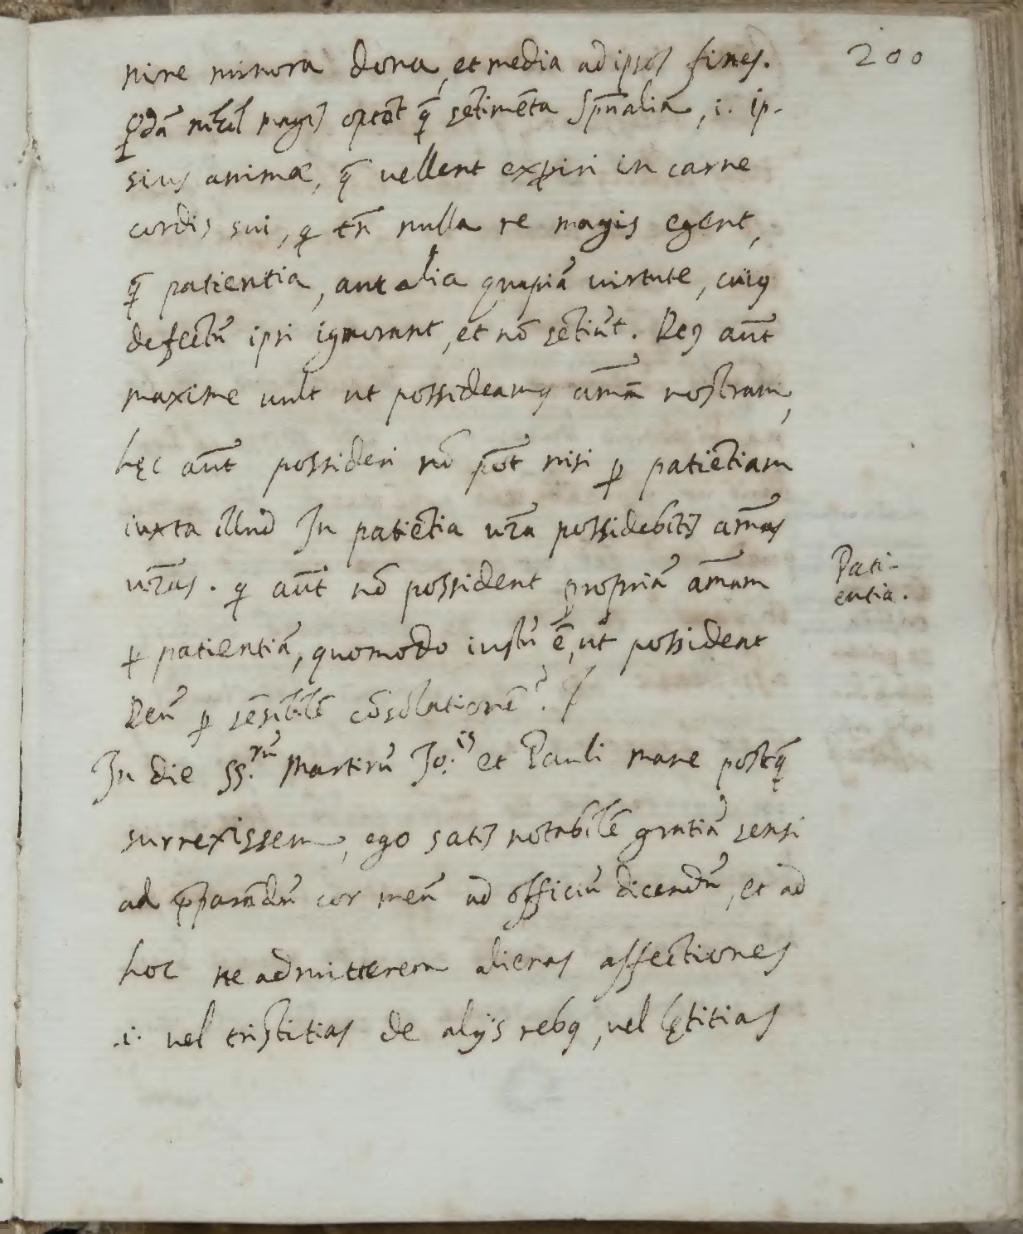 200
nire minora dona, et media ad ipsos fines.
Qdã nihil magis optãt q̃ sẽtimẽta Spũalia, .i. ip-
sius animæ, q̃ vellent exꝑiri in carne
cordis sui, q tñ nulla re magis egent,
q̃ patientia, aut alia quapiã virtute, cuiꝰ
defectũ ipsi ignorant, et nõ sẽtiũt. Deꝰ aũt
maxime vult ut possideamꝰ aĩam nostram,
hęc aũt possideri nõ põt nisi ꝑ patiẽtiam
iuxta illud In patiẽtia vr̃a possidebitis aĩas
vr̃as. q aũt nõ possident propriã aĩam
ꝑ patientiã, quomodo iustũ ẽ, ut possident
Deũ ꝑ sẽsibilẽ cõsolationẽ? /
Pati-
entia.
In die SS.rũ Martirũ Jo.is et Pauli mane postq̃
surrexissem, ego satis notabilẽ gratiã sensi
ad p̃parãdũ cor meũ ad officiũ dicendũ, et ad
hoc ne admitterem alienas affectiones
.i. vel tristitias de alijs rebꝰ, vel lętitias